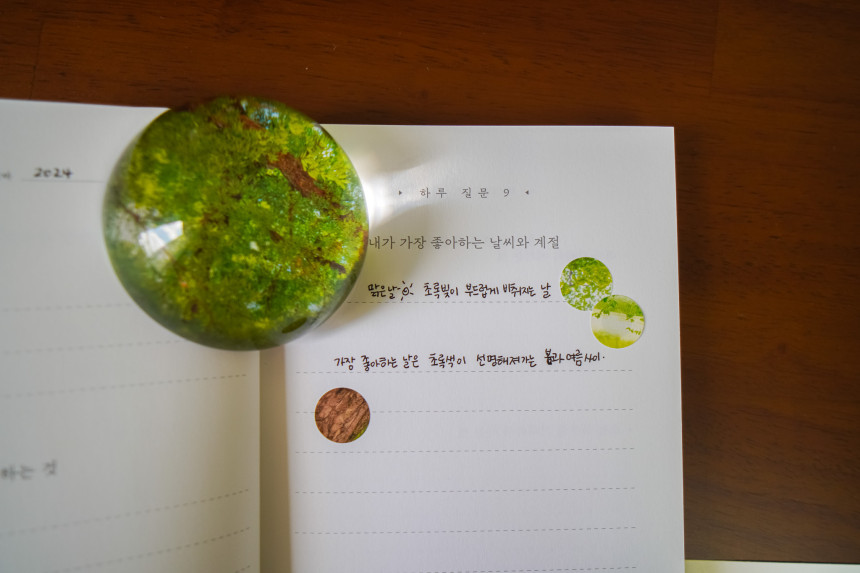 2024
하는 것
▸ 하루 질문 9 ◂
내가 가장 좋아하는 날씨와 계절
맑은날 초록빛이 부드럽게 비춰지는 날
가장 좋아하는 날은 초록색이 선명해져가는 봄과 여름 사이.